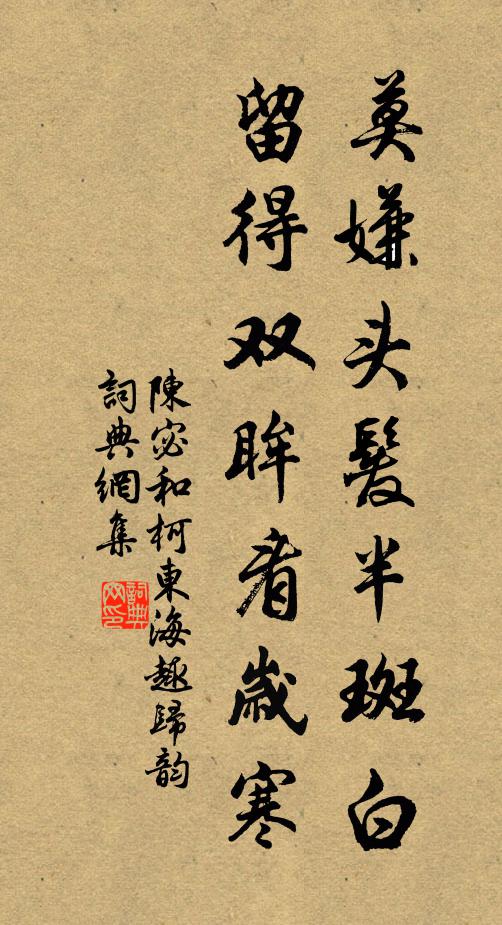 莫嫌头髮半斑白
留得双眸看歲寒
陳宓和柯東海趣歸韵
詞典網集
詞典
网印